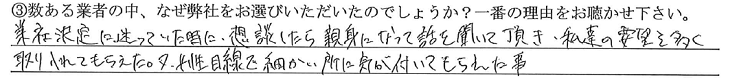 ③数ある業者の中、なぜ弊社をお選びいただいたのでしょうか？一番の理由をお聴かせ下さい。
業社決定に迷っていた時に、想談したら親身になって話を聞いて頂き、私達の要望を多く
取り入れてもらえた。又、女性目線で細かい所に気が付いてもらえた事